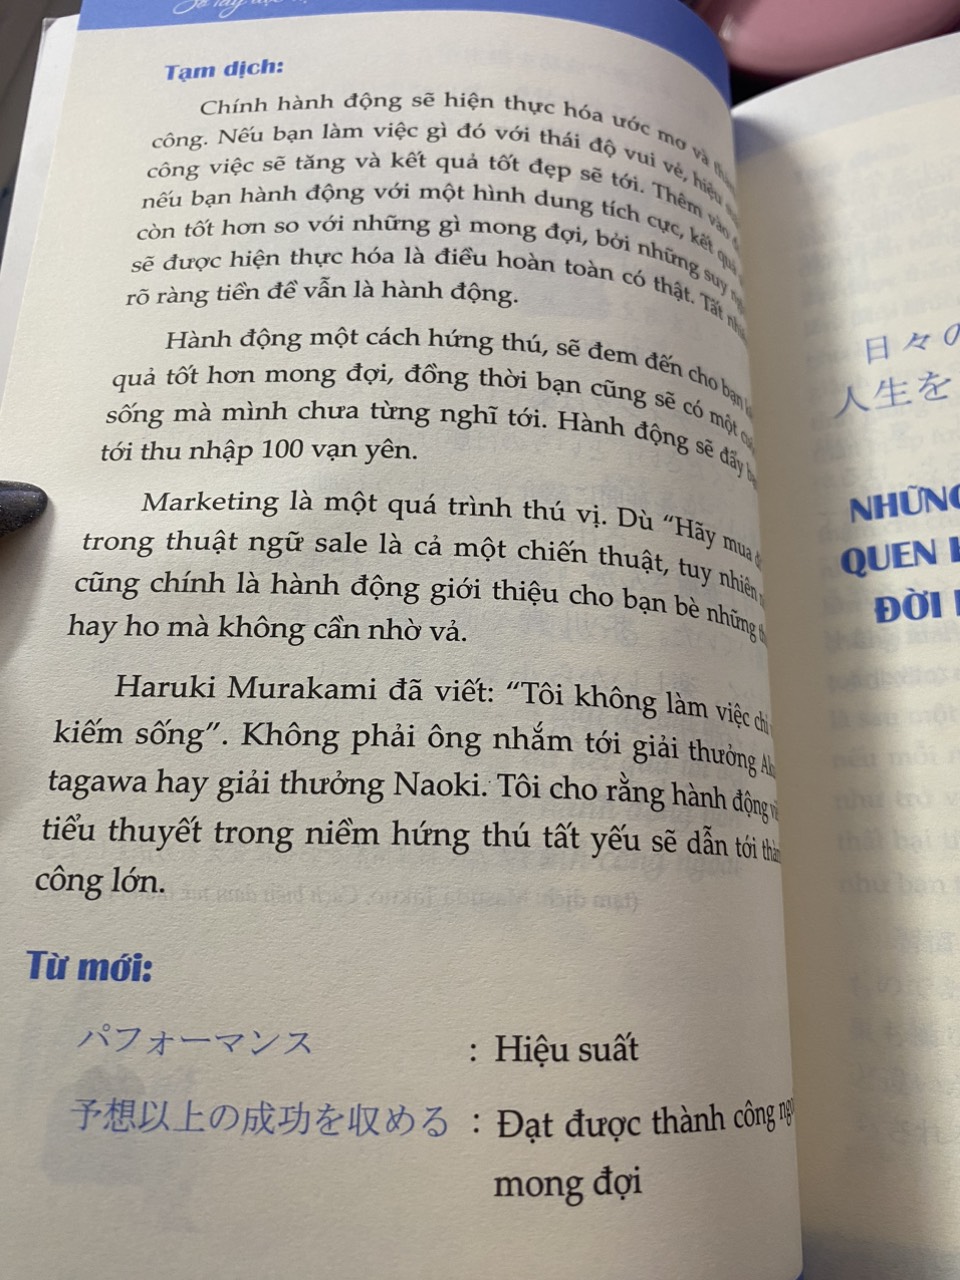 Sổ tay
Tạm dịch:
Chính hành động sẽ hiện thực hóa ước mơ và
công. Nếu bạn làm việc gì đó với thái độ vui vẻ, hiệu
công việc sẽ tăng và kết quả tốt đẹp sẽ tới. Thêm vào
nếu bạn hành động với một hình dung tích cực, kết quả
còn tốt hơn so với những gì mong đợi, bởi những suy
sẽ được hiện thực hóa là điều hoàn toàn có thật. Tất
rõ ràng tiền đề vẫn là hành động.
Hành động một cách hứng thú, sẽ đem đến cho bạn
quả tốt hơn mong đợi, đồng thời bạn cũng sẽ có một
sống mà mình chưa từng nghĩ tới. Hành động sẽ đẩy
tới thu nhập 100 vạn yên.
Marketing là một quá trình thú vị. Dù “Hãy mua
trong thuật ngữ sale là cả một chiến thuật, tuy nhiên
cũng chính là hành động giới thiệu cho bạn bè những
hay ho mà không cần nhờ vả.
Haruki Murakami đã viết: “Tôi không làm việc chỉ
kiếm sống”. Không phải ông nhắm tới giải thưởng
tagawa hay giải thưởng Naoki. Tôi cho rằng hành động
tiểu thuyết trong niềm hứng thú tất yếu sẽ dẫn tới
công lớn.
Từ mới:
パフォーマンス : Hiệu suất
予想以上の成功を収める : Đạt được thành công
mong đợi
日々の
人生を
NHỮNG
QUEN
ĐỜI